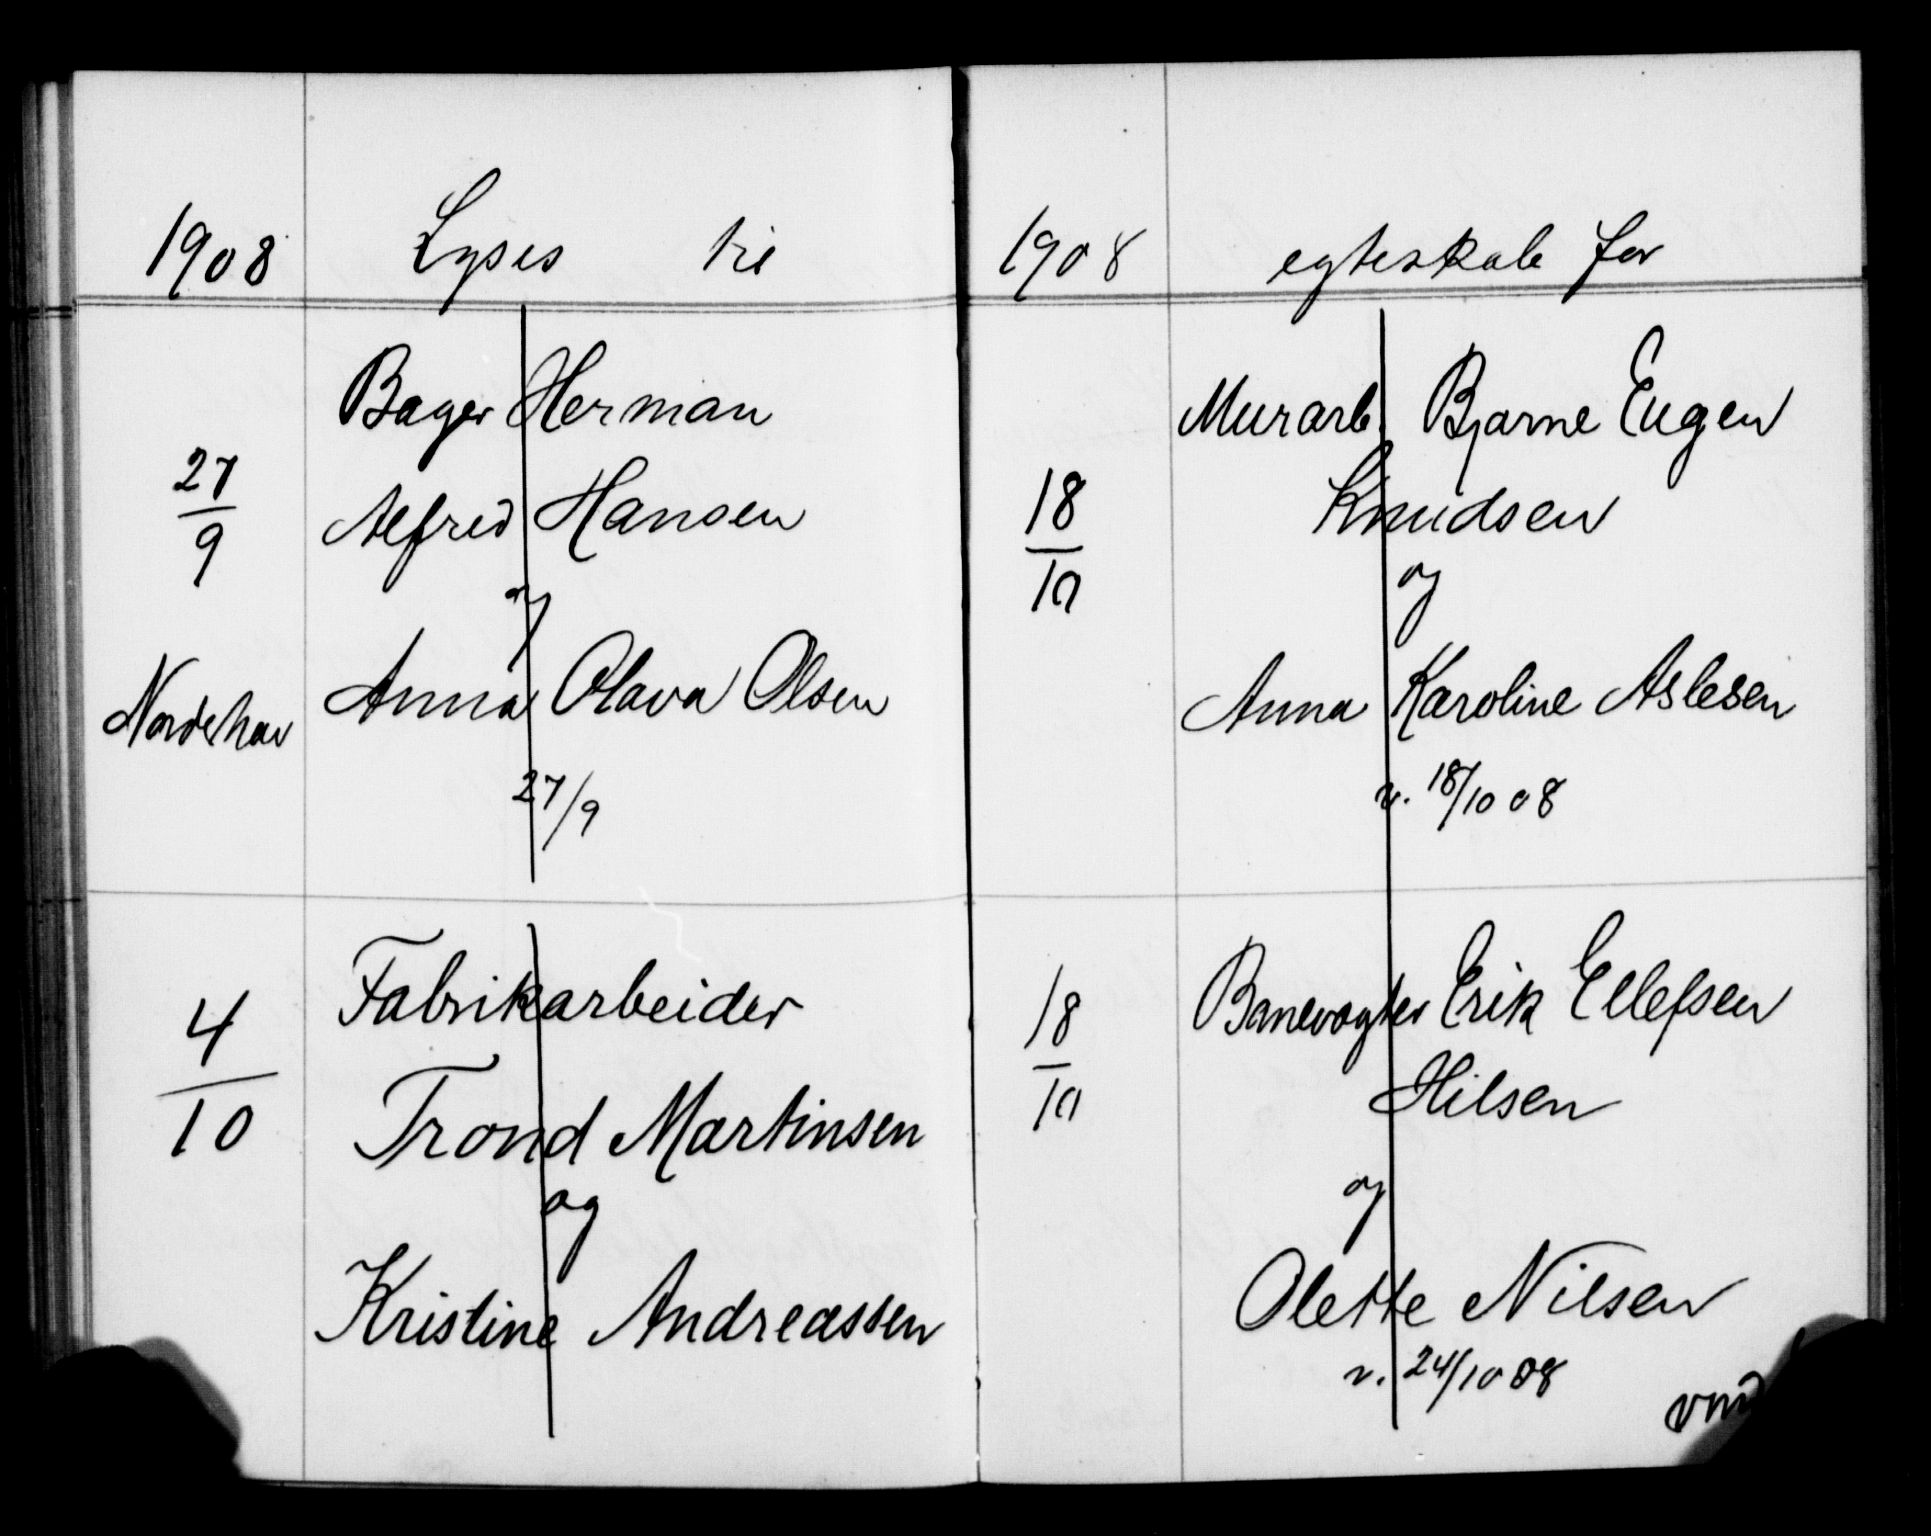 1908 Lyses til
27/9
Bager Herman
Alfred Hansen
og
Anna Olava Olsen
27/9
4/10
Fabrikarbeider
Trond Martinsen
og
Kristine Andreassen
1908 egteskab for
18/10
Murarb. Bjarne Eugen
Knudsen
og
Anna Karoline Aslesen
v. 18/10 08
18/10
Banevogter Erik Ellefsen
Hilsen
og
Olette Nilsen
v. 24/10 08